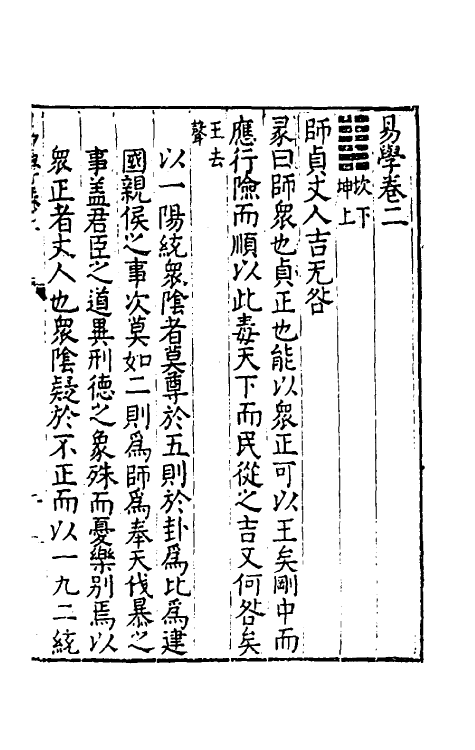 易學卷二
䷆坎下
坤上
師貞丈人吉无咎
彖曰師衆也貞正也能以衆正可以王矣剛中而
應行險而順以此毒天下而民從之吉又何咎矣
王去
聲
以一陽統衆陰者莫尊於五則於卦爲比爲建
國親侯之事次莫如二則爲師爲奉天伐暴之
事盖君臣之道異刑德之象殊而憂樂别焉以
衆正者丈人也衆陰疑於不正而以一九二統